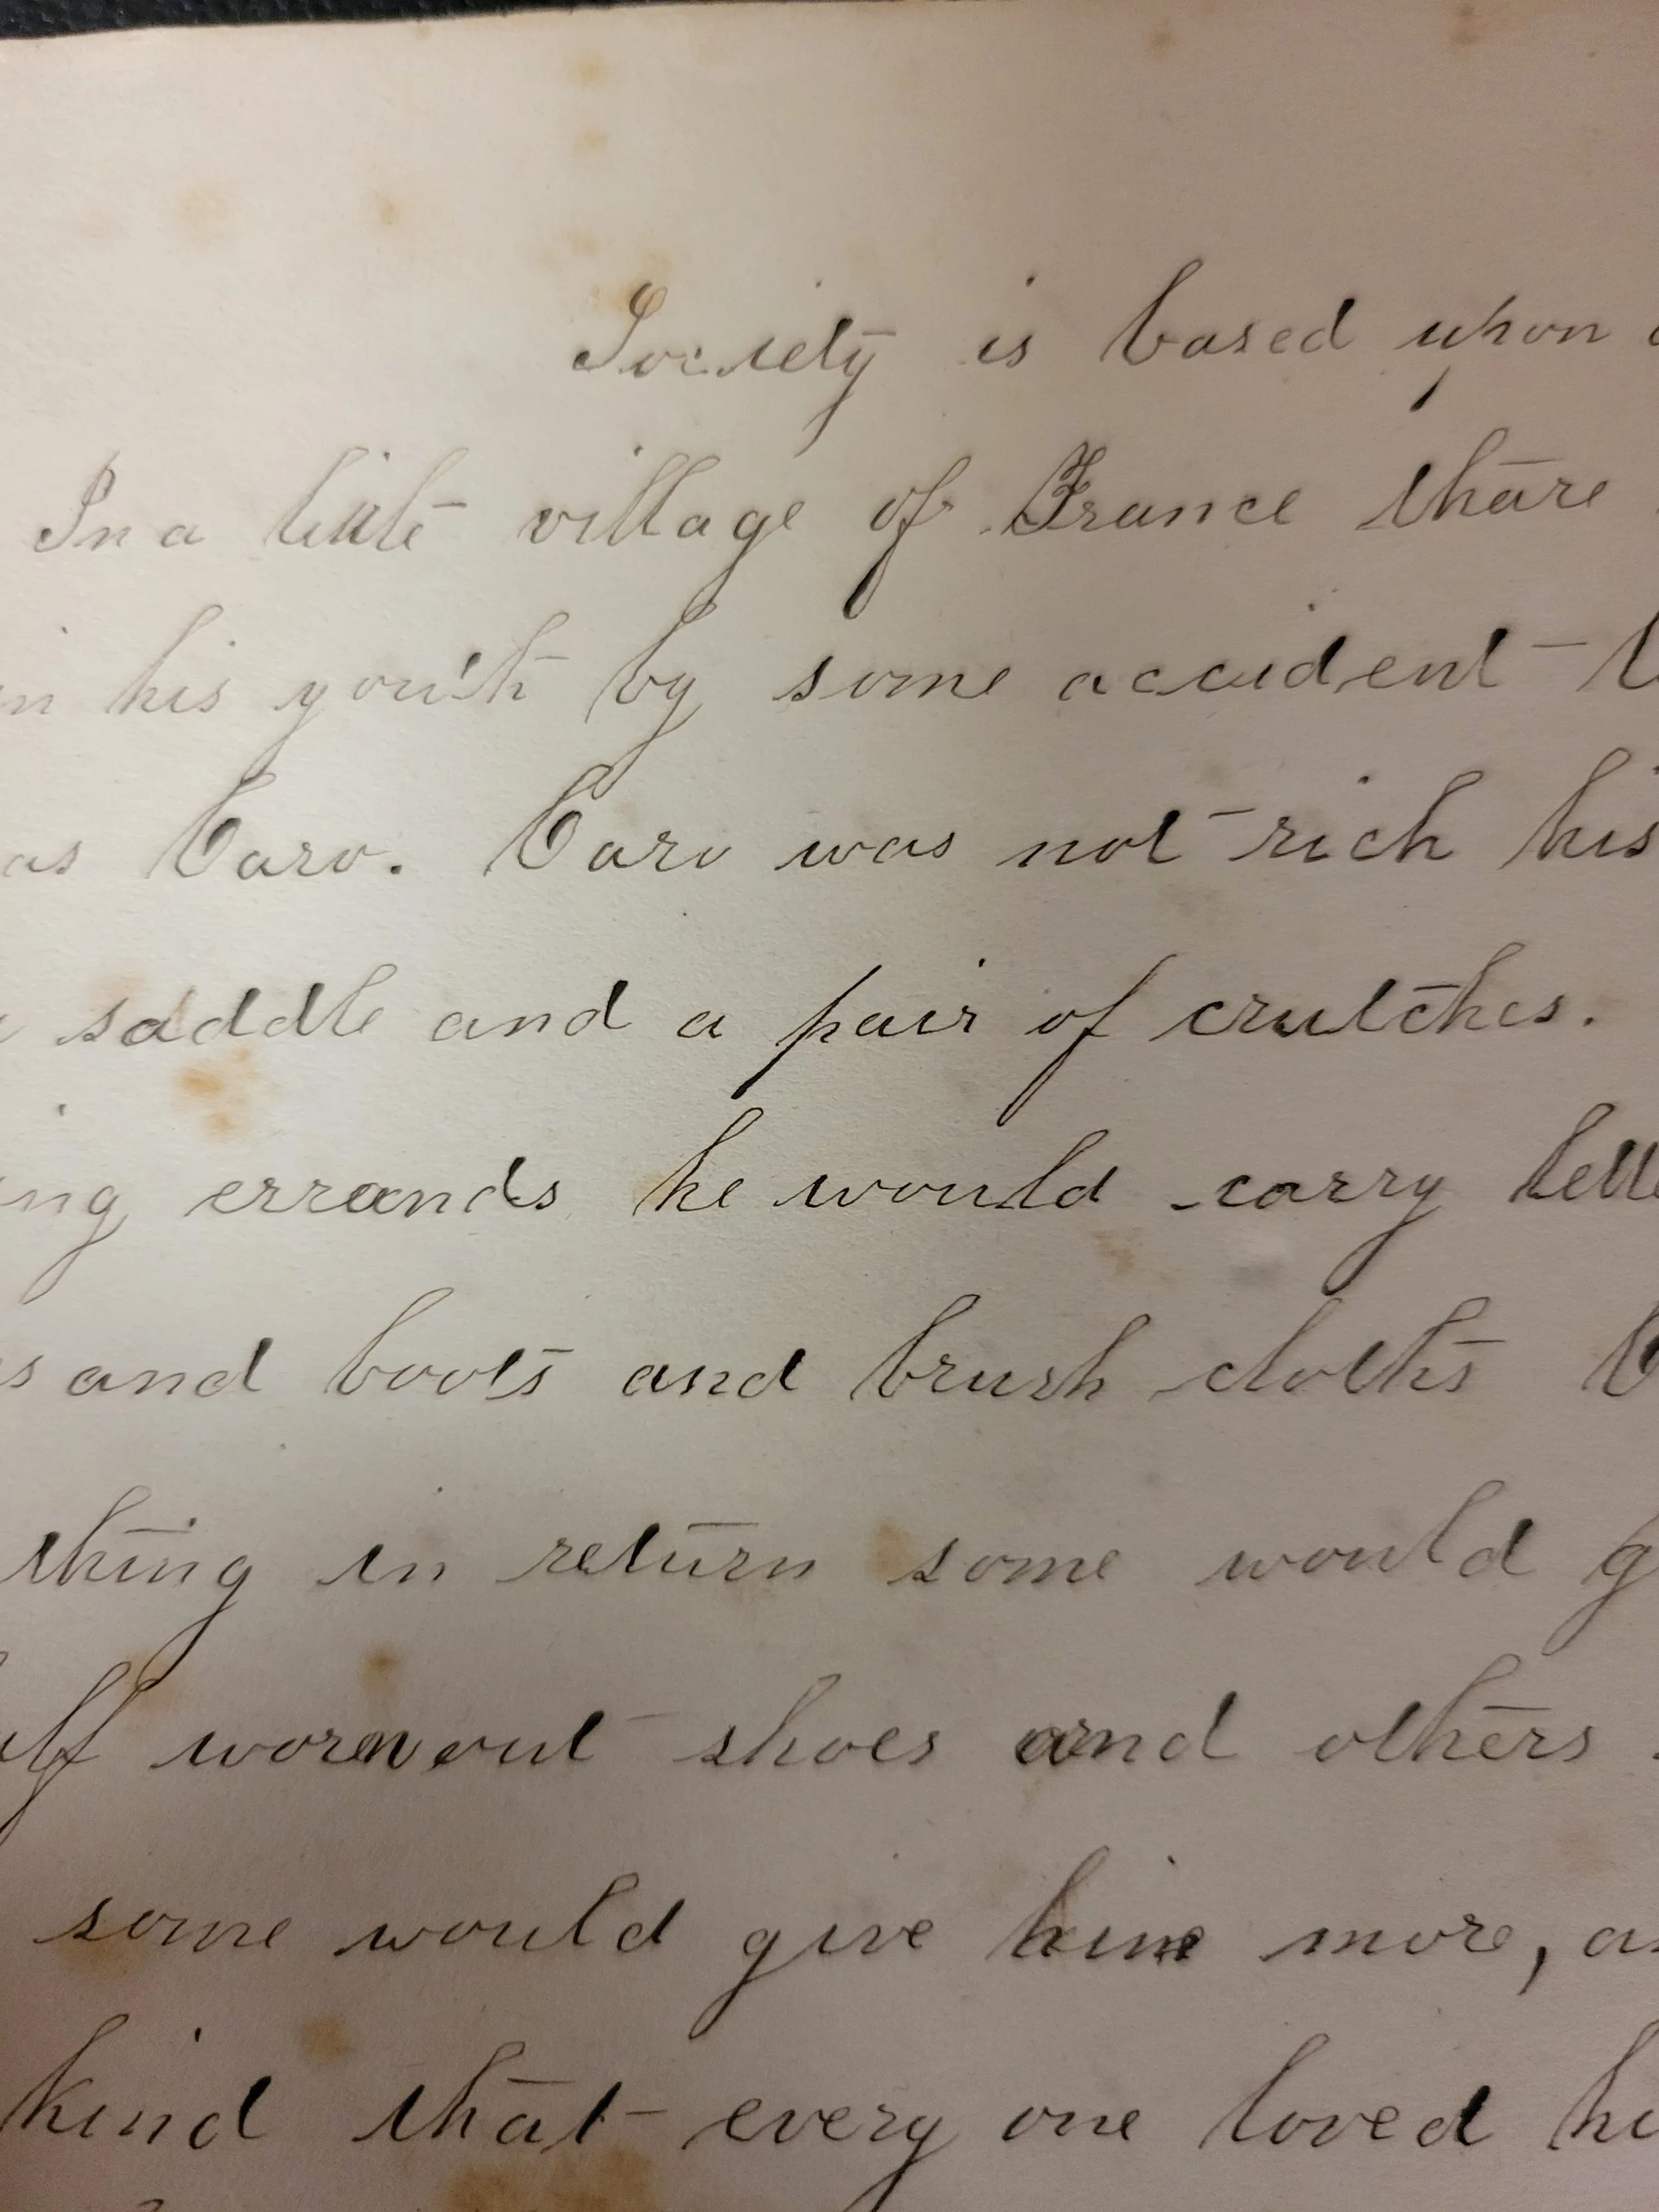 Society is based upon
In a little village of France thare
in his youth by some accident
as Caro. Caro was not rich his
saddle and a pair of crutches.
ing errands he would carry lette
s and boots and brush cloths
thing in return some would g
alf wornout shoes and others
some would give him more, an
kind that every one loved hi